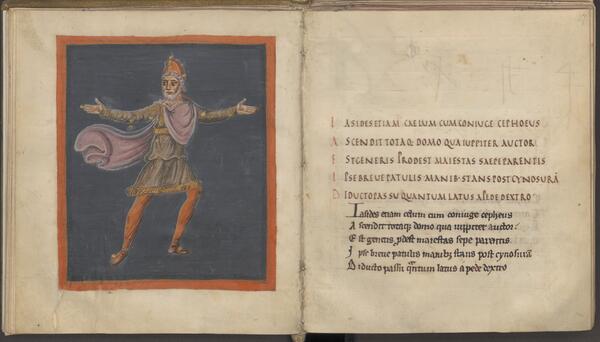 IASIDES ETIAM CAELUM CUM CONIUGE CEPHOEUS
ASCENDIT TOTAQ· DOMO QUA IUPPITER AUCTOR
EST GENERIS PRODEST MAIESTAS SAEPE PARENTIS
IPSE BREVE PATULIS MANIB· STANS POST CYNOSURĀ
DIDUCTO PASSU QUANTUM LATUS A PEDE DEXTRO
Iasides etiam celum cum coniuge cepheus
Ascendit totaq; domo qua iuppiter auctor·
Est generis pdest maiestas sepe parentis·
Ipse breve patulis manibz stans post cynosurā
Diducto passu qntum latus a pede dextro